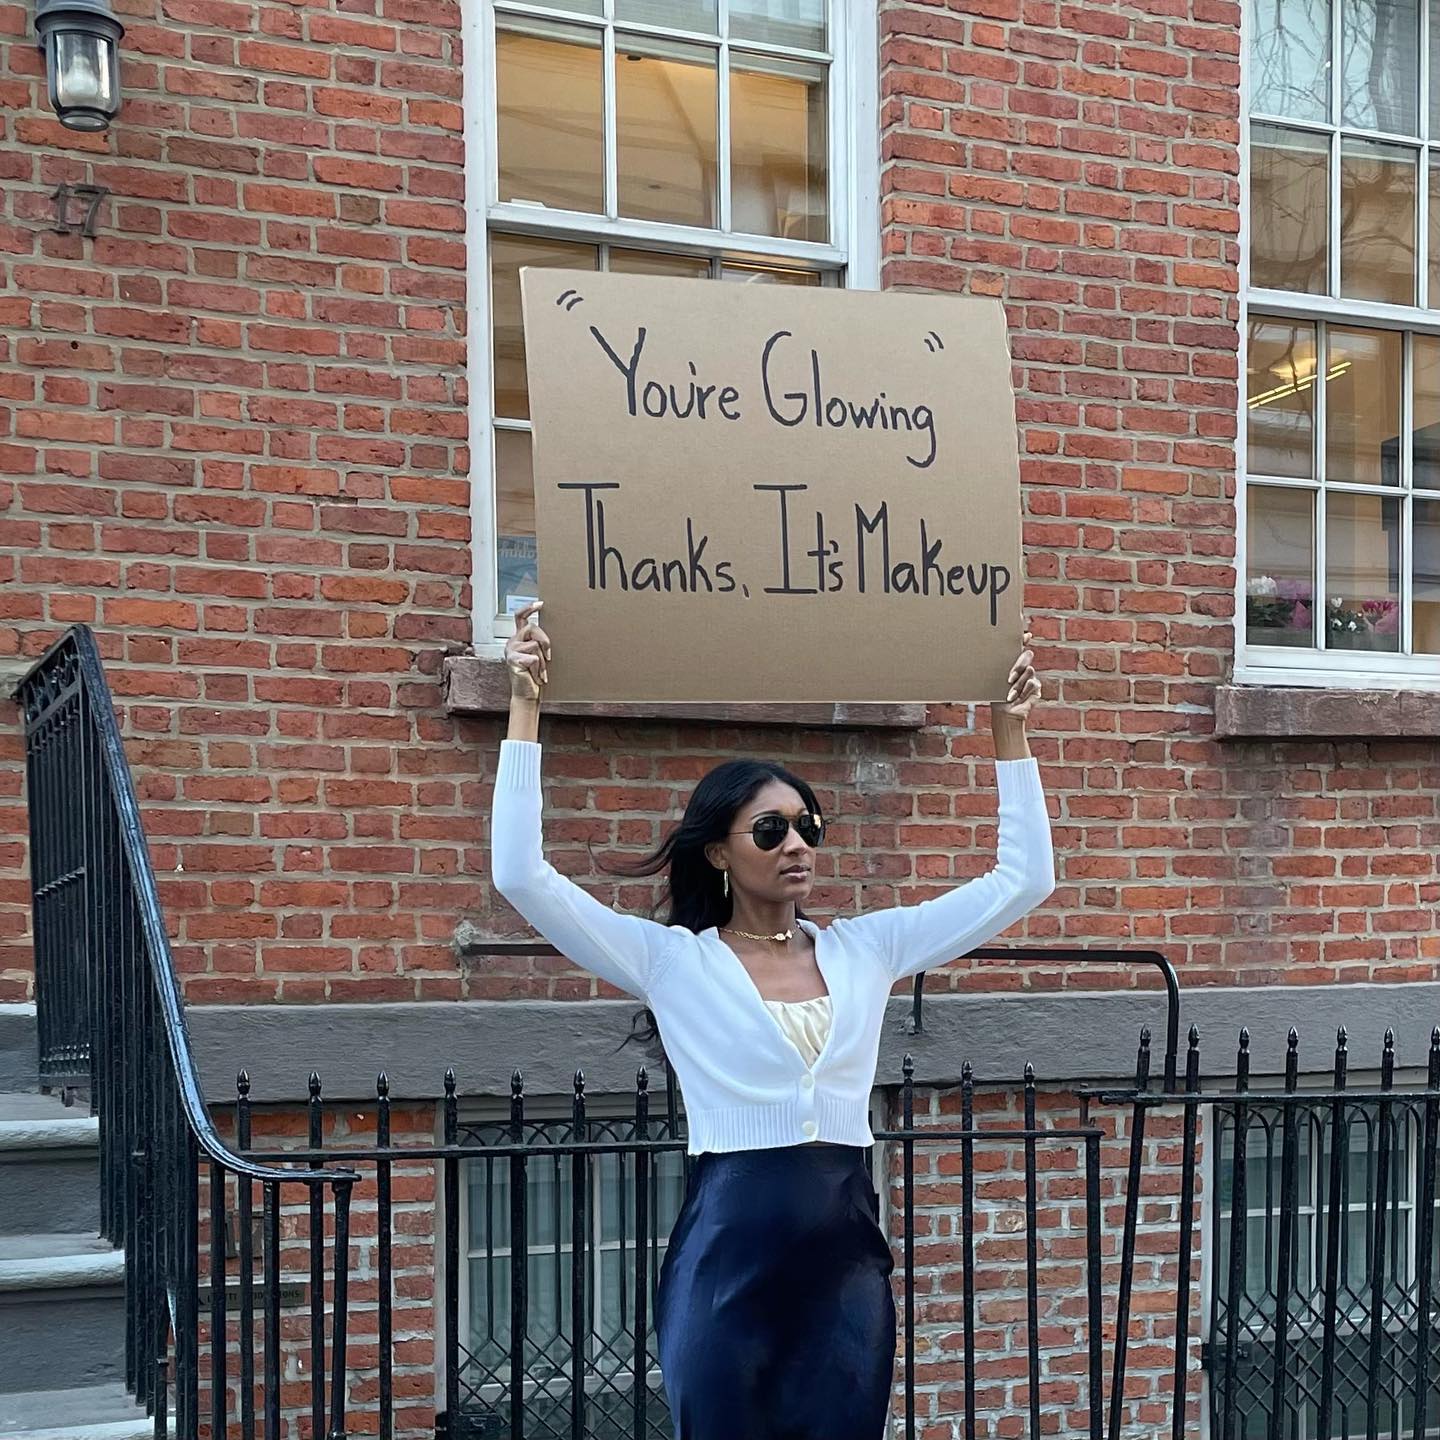 17
"You're Glowing"
Thanks, It's Makeup